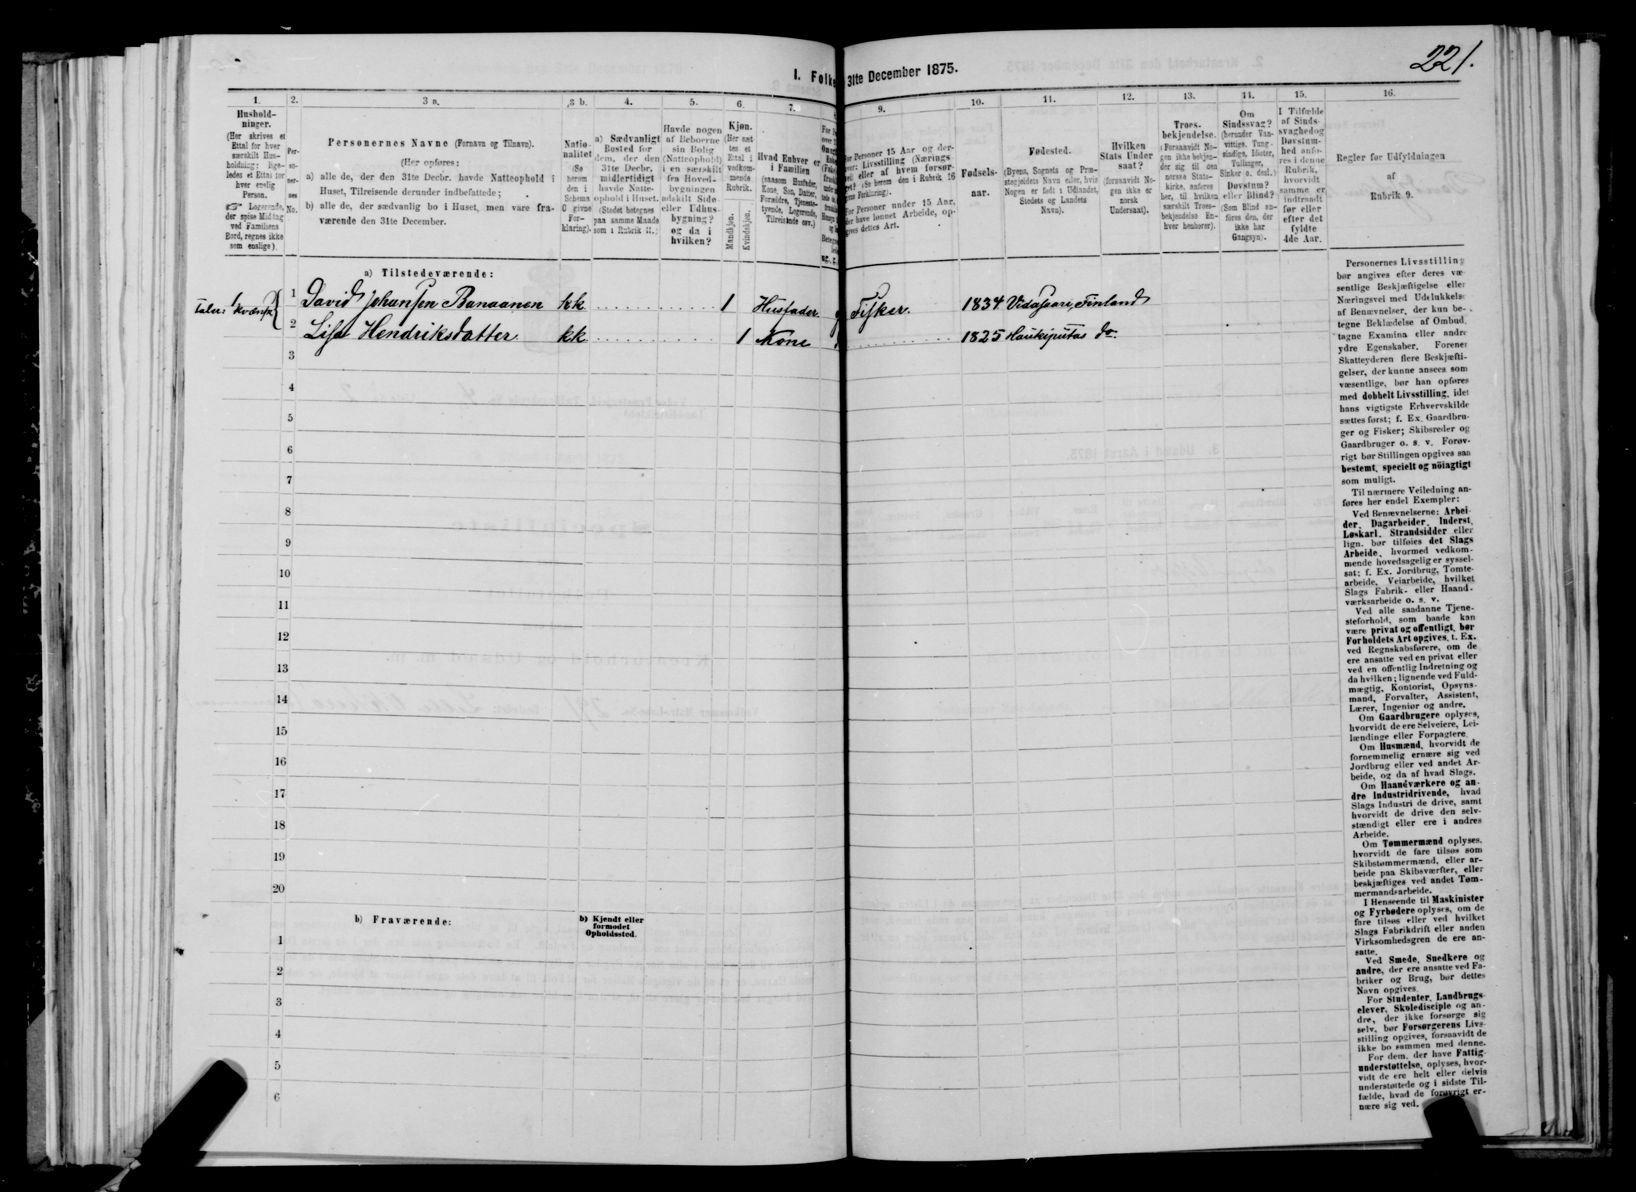 221.
I. Folke 31te December 1875.
1. 2. 3 a. 3 b. 4. 5. 6. 7. 9. 10. 11. 12. 13. 14. 15. 16.
Hushold-
ninger.
(Her skrives et
Ettal for hver
særskilt Hus-
holdning; lige-
ledes et Ettal for
hver enslig
Person.
Logerende,
der spise Middag
ved Familiens
Bord, regnes ikke
som enslige).
Per-
so-
ner-
nes
No.
Personernes Navne (Fornavn og Tilnavn).
(Her opføres:
a) alle de, der den 31te Decbr. havde Natteophold i
Huset, Tilreisende derunder indbefattede;
b) alle de, der sædvanlig bo i Huset, men vare fra-
værende den 31te December.
Natio-
nalitet
(Se
herom
den i
Schema
O givne
For-
klaring).
a) Sædvanligt
Bosted for
dem, der den
31te Decbr.
midlertidigt
havde Natte-
ophold i Huset.
(Stedet betegnes
paa samme Maade
som i Rubrik 11.)
Havde nogen
af Beboerne
sin Bolig
(Natteophold)
i en særskilt
fra Hoved-
bygningen
adskilt Side-
eller Udhus-
bygning?
og da i
hvilken?
Kjøn.
(Her sæt-
tes et
Ettal i
vedkom-
mende
Rubrik.
Mandkjøn.
Kvindekjøn.
Hvad Enhver er
i Familien
(saasom Husfader,
Kone, Søn, Datter,
Forældre, Tjenesta-
tyende, Logerende,
Tilreisende osv.)
For Personer 15 Aar og der-
over: Livsstilling (Nærings-
vei) eller af hvem forsør-
get? (Se herom den i Rubrik 16
givne Forklaring).
For Personer under 15 Aar,
der have lønnet Arbeide, op-
gives dettes Art.
Fødsels-
aar.
Fødested.
(Byens, Sognets og Præ-
stegjeldets Navn eller, hvis
Nogen er født i Udlandet,
Stedets og Landets
Navn).
Hvilken
Stats Under
saat?
(forsaavidt No-
gen ikke er
norsk
Undersaat).
Troes-
bekjendelse.
(Forsaavidt No-
gen ikke bekjen-
der sig til den
norske Stats-
kirke, anføres
her, til hvilken
særskilt Troes-
bekjendelse En-
hver henhører).
Om
Sindssvag?
(herunder Van-
vittige, Tung-
sindige, Idioter,
Tullinger,
Sinker o. desl.)
Døvstum?
eller Blind?
(Som Blind an-
føres den, der
ikke har
Gangsyn).
I Tilfælde
af Sinds-
svaghed og
Døvstum-
hed anfø-
res i denne
Rubrik,
hvorvidt
samme er
indtraadt
før eller
efter det
fyldte
4de Aar.
Regler før Udfyldningen
af
Rubrik 9.
a) Tilstedeværende:
Taler: kvænsk
1 1 David Johansen Banaanen kk 1 Husfader Fisker 1834 Finland
2 Lisa Hendriksdatter kk 1 Kone 1825 Haukiputas do.
3
4
5
6
7
8
9
10
11
12
13
14
15
16
17
18
19
20
b) Fraværende:
b) Kjendt eller
formodet
Opholdssted.
1
2
3
4
5
6
Personernes Livsstilling
bør angives efter deres væ-
sentlige Beskjæftigelse eller
Næringsvei med Udelukkelse
af Benævnelser, der kun be-
tegne Beklædelse af Ombud,
tagne Examina eller andre
ydre Egenskaber. Forener
Skatteyderen flere Beskjæfti-
gelser, der kunne ansees som
væsentlige, bør han opføres
med dobbelt Livsstilling, idet
hans vigtigste Erhvervskilde
sættes først; f. Ex. Gaardbru-
ger og Fisker; Skibsreder og
Gaardbruger o. s. v. Forøv-
rigt bør Stillingen opgives saa
bestemt, specielt og nöiagtigt
som muligt.
Til nærmere Veiledning an-
føres her endel Exempler:
Ved Benævnelserne: Arbei-
der, Dagarbeider, Inderst,
Løskarl, Strandsidder eller
lign. bør tilføies det Slags
Arbeide, hvormed vedkom-
mende hovedsagelig er syssel-
sat; f. Ex. Jordbrug, Tomte-
arbeide, Veiarbeide, hvilket
Slags Fabrik- eller Haand-
værksarbeide o. s. v.
Ved alle saadanne Tjene-
steforhold, som baade kan
være privat og offentligt, bør
Forholdets Art opgives, t. Ex.
ved Regnskabsførere, om de
ere ansatte ved en privat eller
ved en offentlig Indretning og
da hvilken; lignende ved Fuld-
mægtig, Kontorist, Opsyns-
mand, Forvalter, Assistent,
Lærer, Ingeniør og andre.
Om Gaardbrugere oplyses,
hvorvidt de ere Selveiere, Lei-
lændinge eller Forpagtere.
Om Husmænd, hvorvidt de
fornemmelig ernære sig ved
Jordbrug eller ved andet Ar-
beide, og da af hvad Slags.
Om Haandværkere og an-
dre Industridrivende, hvad
Slags Industri de drive, samt
hvorvidt de drive den selv-
stændigt eller ere i andres
Arbeide.
Om Tømmermænd oplyses,
hvorvidt de fare tilsøs som
Skibstømmermænd, eller ar-
beide paa Skibsværfter, eller
beskjæftiges ved andet Tøm-
mermandsarbeide.
I Henseende til Maskinister
og Fyrbødere oplyses, om de
fare tilsøs eller ved hvilket
Slags Fabrikdrift eller anden
Virksomhedsgren de ere an-
satte.
Ved Smede, Snedkere og
andre, der ere ansatte ved Fa-
briker og Brug, bør dettes
Navn opgives.
For Studenter, Landbrugs-
elever, Skoledisciple og an-
dre, der ikke forsørge sig
selv, bør Forsørgerens Livs-
stilling opgives, forsaavidt de
ikke bo sammen med denne.
For dem, der have Fattig-
understøttelse, oplyses, hvor-
vidt de ere helt eller delvis
understøttede og i sidste Til-
fælde, hvad de forøvrigt er-
nære sig ved.